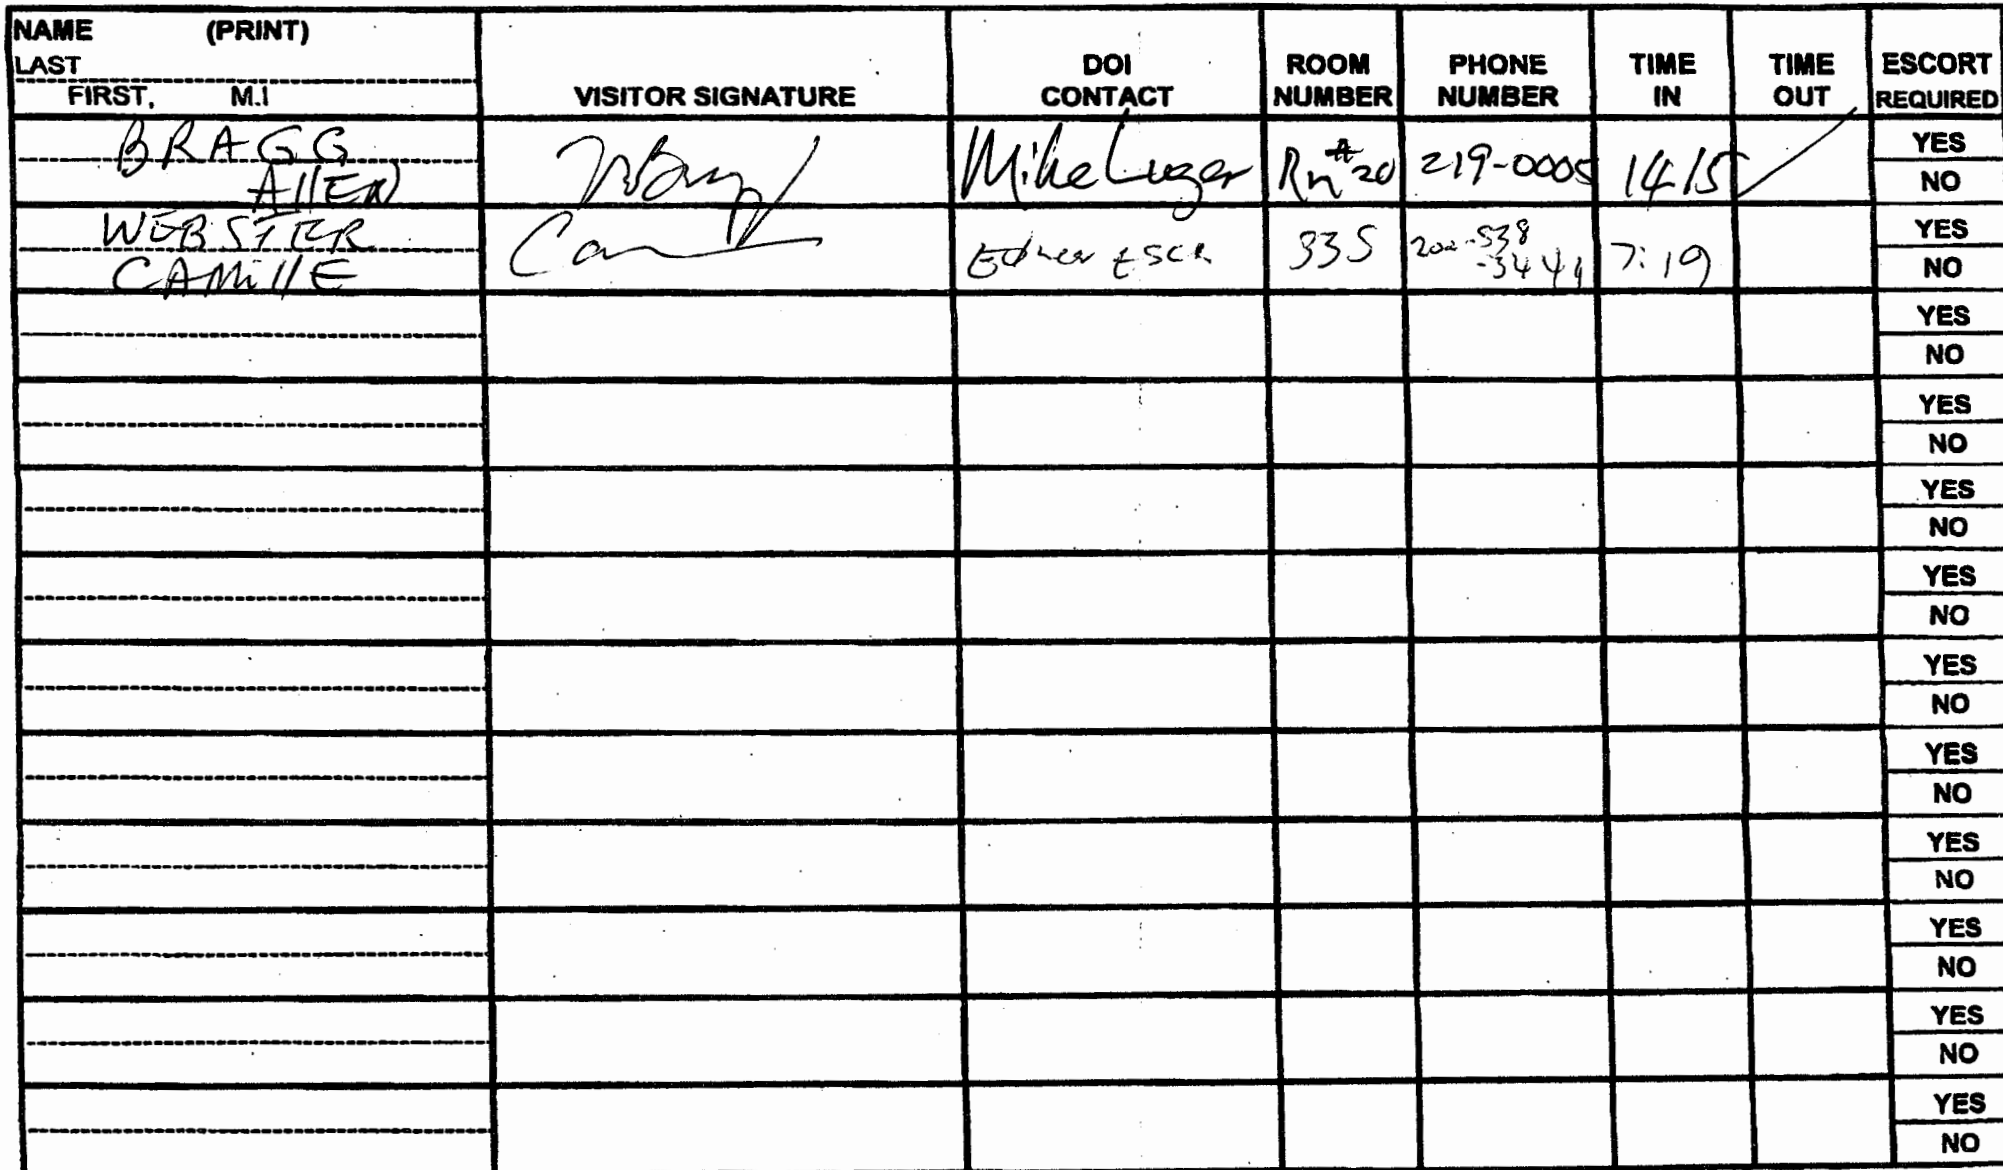 NAME (PRINT)
LAST
FIRST, M.I
VISITOR SIGNATURE
DOI
CONTACT
ROOM
NUMBER
PHONE
NUMBER
TIME
IN
TIME
OUT
ESCORT
REQUIRED
BRAGG
AllEN
Mike Luger
Rm #20
219-0005
1415
YES
NO
WEBSTER
CAMillE
335
202-538
-3441
7:19
YES
NO
YES
NO
YES
NO
YES
NO
YES
NO
YES
NO
YES
NO
YES
NO
YES
NO
YES
NO
YES
NO